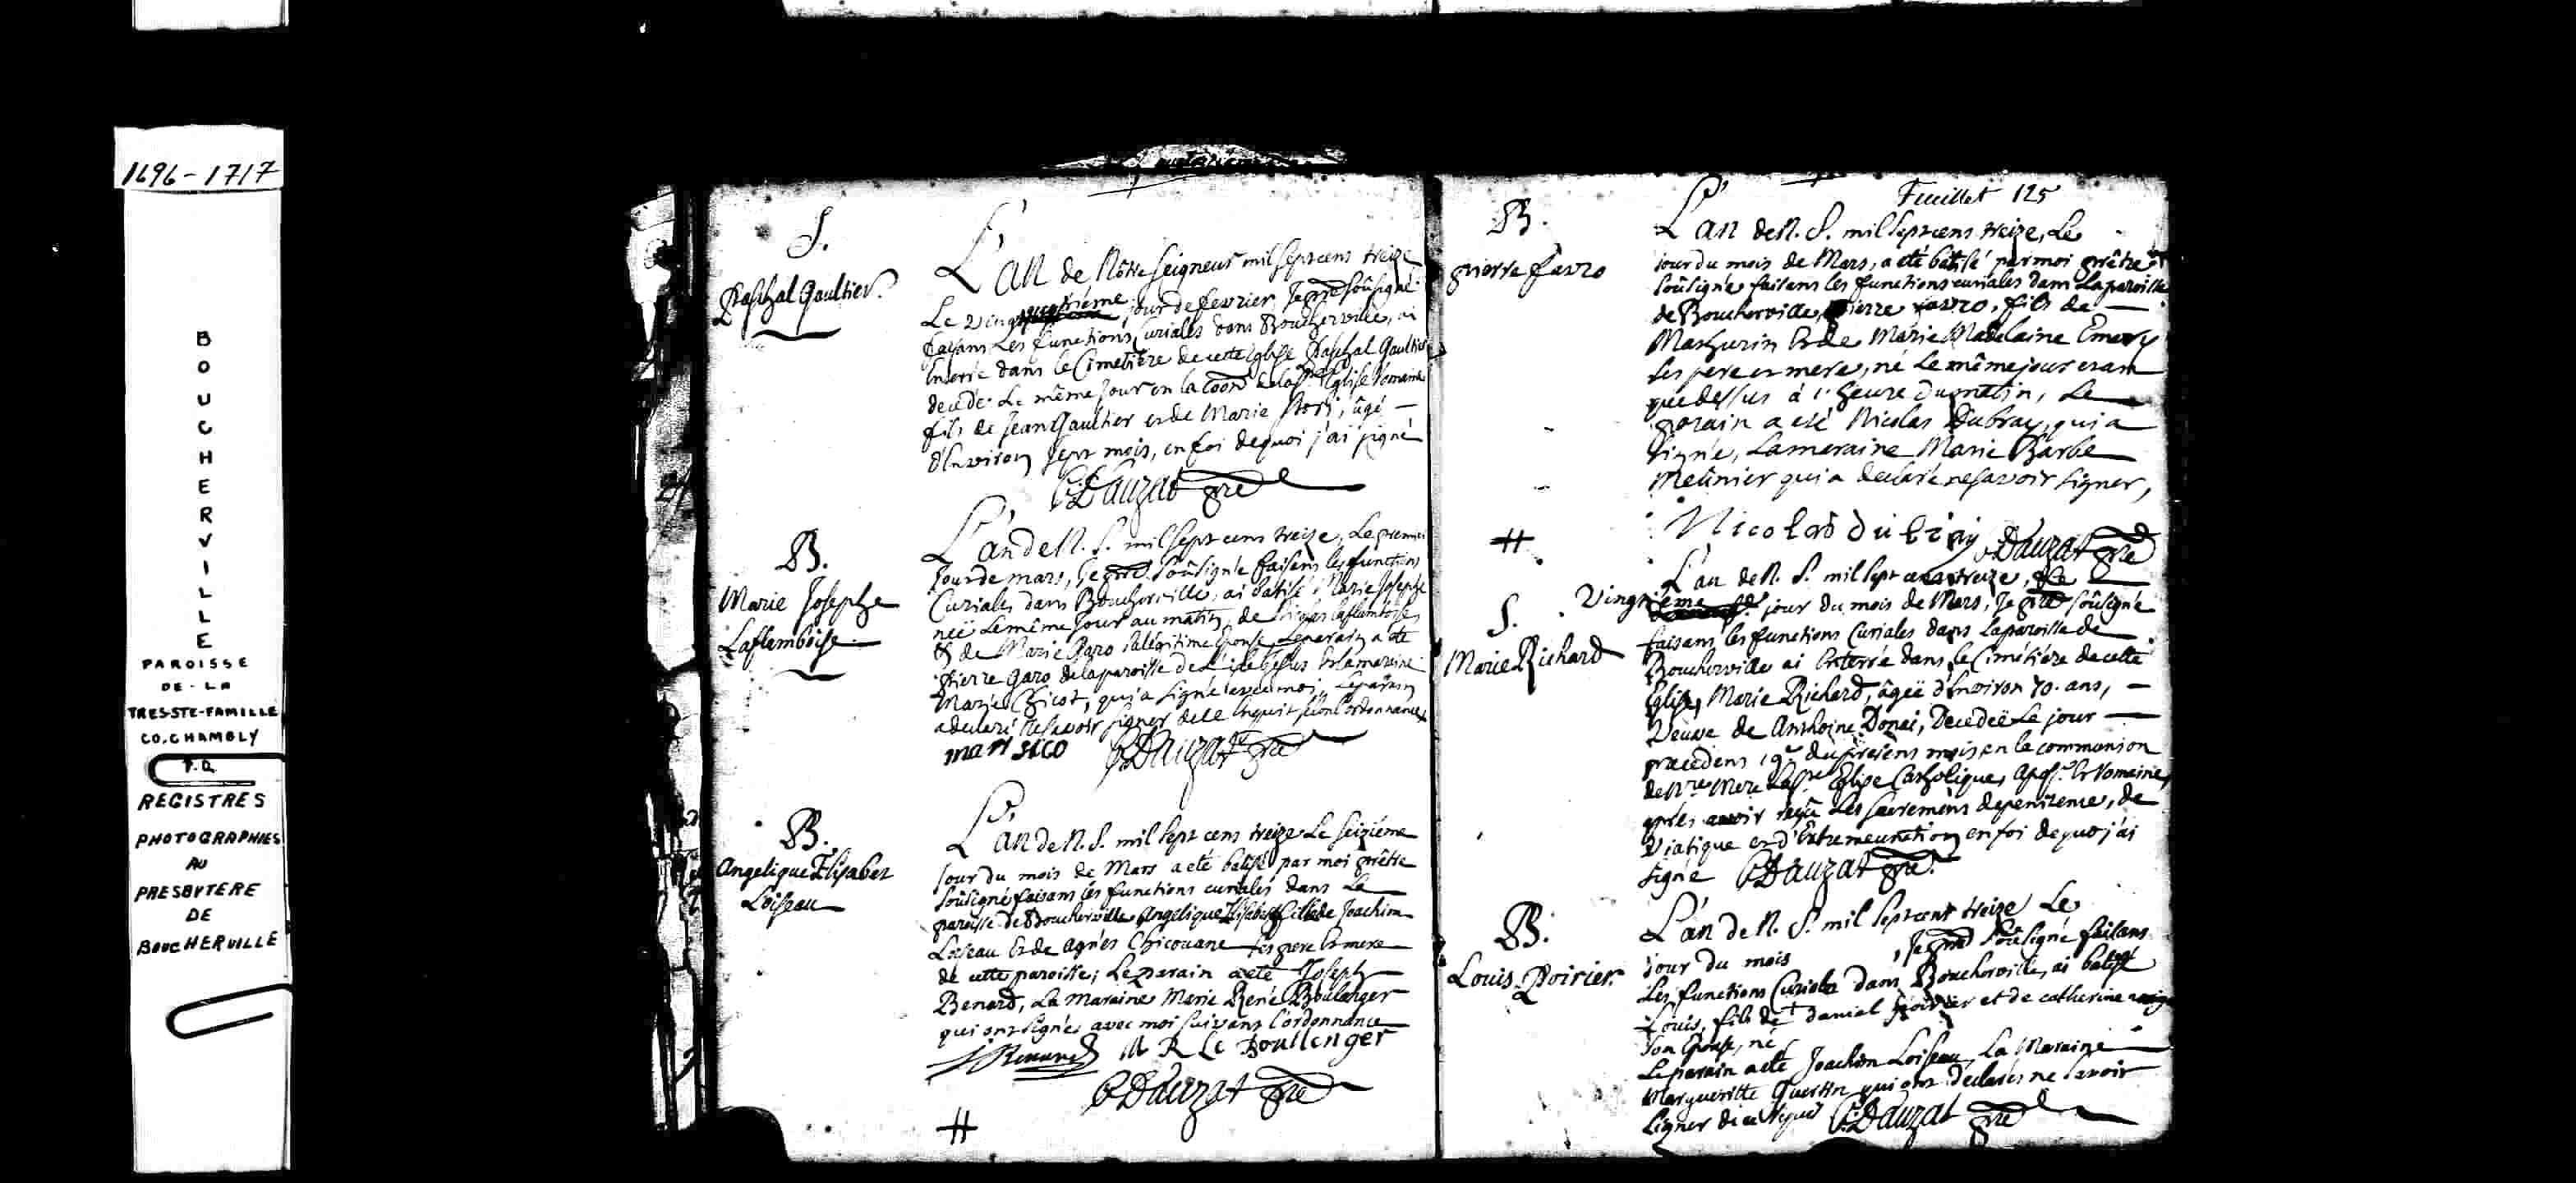 1696-1717
B
O
U
C
H
E
R
V
I
L
L
E
PAROISSE
DE-LA
TRES-STE-FAMILLE
CO.CHAMBLY
P.Q.
REGISTRES
PHOTOGRAPHIES
AU
PRESBYTERE
DE
BOUCHERVILLE
S.
Paschal Gaultier.
L'an de Nôtre Seigneur mil sept cens treize
Le vingt jour de fevrier Je pre soûsigné
faisans Les functions Curiales dans Boucherville, ai
Enterré dans le Cimetiere de cette Eglise Paschal Gaultier
decedé Le même jour en la Coon de la Ste Eglise Romaine
fils de Jean Gaultier et de Marie, âgé
d'Environ sept mois, en foi dequoi j'ai signé
C. Dauzat pre
B.
Marie Josephe
Laflamboise
L'an de N. S. mil sept cens treize, Le premier
Jour de mars, Je pre soûsigné faisans les functions
Curiales dans Boucherville, ai batisé Marie Josephe
neë Le même Jour au matin, de Laflamboise
& de Marie Garo sa légitime Epouse Le parain a eté
Pierre Garo de la paroisse de Et la maraine
Marie Chicot, qui a signé avec moi, Le parain
a declaré ne savoir signer de ce Enquit selon l'ordonnance
mari sico C. Dauzat pre
B.
Angelique Elisabet
Loiseau
L'an de N. S. mil sept cens treize Le seiziéme
Jour du mois de Mars a eté batisé par moi prêtre
soûsigné faisans les functions curiales dans La
paroisse de Boucherville Angelique Elisabet fille de Joachim
Loiseau Et de Agnés Chicouane ses pere Et mere
de cette paroisse; Le parain a eté Joseph
Benard, La maraine Marie René Boulanger
qui ont signés avec moi suivans l'ordonnance
M R Le Boullenger
C. Dauzat pre
#
Feuillet 125
B.
pierre favro
L'an de N. S. mil sept cens treize, Le
jour du mois de Mars, a eté batisé par moi prêtre
soûsigné faisans les functions curiales dans La paroisse
de Boucherville, Pierre favro, fils de
Mathurin Et de Marie Madelaine Emery
ses pere et mere, né Le même jour et an
que dessus à 1. heure du matin, Le
parain a eté Nicolas Dubray, qui a
signé, La meraine Marie Barbe
Meünier qui a declaré ne savoir signer,
Nicolas du bray C. Dauzat pre
#
S.
Marie Richard
L'an de N. S. mil sept cens treize, Le
Vingtiéme jour du mois de Mars, Je pre soûsigné
faisans les functions Curiales dans La paroisse de
Boucherville ai Enterré dans le Cimétiére de cette
Eglise, Marie Richard, âgeë d'Environ 70. ans,
Veuve de Anthoine Donei, Decedeë Le jour
precedens 19e du present mois en le communion
de Ntre Mere La Ste Eglise Catholique, Apost. Et Romaine,
aprés avoir reçû Les sacremens de penitence, de
Viatique et d'Extremeunction en foi de quoi j'ai
signé C. Dauzat pre.
B.
Louis Poirier.
L'an de N. S. mil sept cent treize Le
jour du mois , Je pre soûsigné faisans
Les functions Curiales dans Boucherville, ai batisé
Louis, fils de daniel poirier et de catherine
son Epouse, né
Le parain a eté Joachim Loiseau, La Maraine
Marguerite Quertin qui ont declarés ne savoir
signer C. Dauzat pre